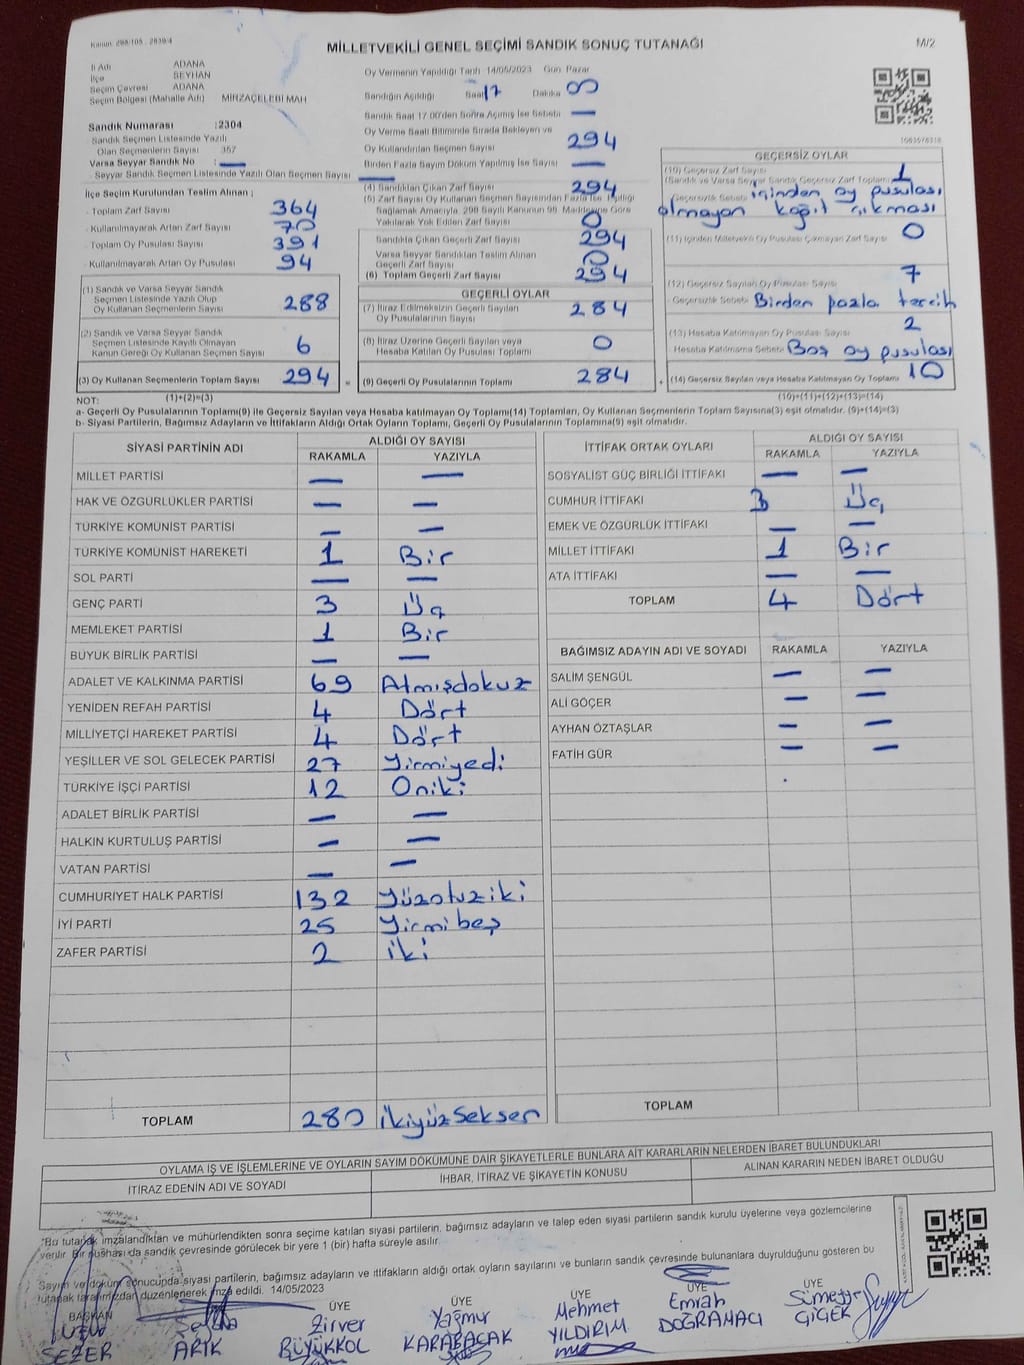 Kanun: 298/105 - 2839/4
MİLLETVEKİLİ GENEL SEÇİMİ SANDIK SONUÇ TUTANAĞI
M/2
İl Adı ADANA
İlçe SEYHAN
Seçim Çevresi ADANA
Seçim Bölgesi (Mahalle Adı) MİRZAÇELEBİ MAH
Sandık Numarası :2304
Sandık Seçmen Listesinde Yazılı
Olan Seçmenlerin Sayısı 357
Varsa Seyyar Sandık No : —
Seyyar Sandık Seçmen Listesinde Yazılı Olan Seçmen Sayısı —
İlçe Seçim Kurulundan Teslim Alınan ;
- Toplam Zarf Sayısı 364
- Kullanılmayarak Artan Zarf Sayısı 70
- Toplam Oy Pusulası Sayısı 391
- Kullanılmayarak Artan Oy Pusulası 94
(1) Sandık ve Varsa Seyyar Sandık
Seçmen Listesinde Yazılı Olup
Oy Kullanan Seçmenlerin Sayısı 288
(2) Sandık ve Varsa Seyyar Sandık
Seçmen Listesinde Kayıtlı Olmayan
Kanun Gereği Oy Kullanan Seçmen Sayısı 6
(3) Oy Kullanan Seçmenlerin Toplam Sayısı 294
Oy Vermenin Yapıldığı Tarih 14/05/2023 Gün Pazar
Sandığın Açıldığı Saat 17 Dakika 00
Sandık Saat 17.00'den Sonra Açılmış İse Sebebi —
Oy Verme Saati Bitiminde Sırada Bekleyen ve
Oy Kullandırılan Seçmen Sayısı 294
Birden Fazla Sayım Döküm Yapılmış İse Sayısı —
(4) Sandıktan Çıkan Zarf Sayısı 294
(5) Zarf Sayısı Oy Kullanan Seçmen Sayısından Fazla İse Eşitliği
Sağlamak Amacıyla, 298 Sayılı Kanunun 98. Maddesine Göre
Yakılarak Yok Edilen Zarf Sayısı 0
Sandıkta Çıkan Geçerli Zarf Sayısı 294
Varsa Seyyar Sandıktan Teslim Alınan
Geçerli Zarf Sayısı 0
(6) Toplam Geçerli Zarf Sayısı 294
GEÇERLİ OYLAR
(7) İtiraz Edilmeksizin Geçerli Sayılan
Oy Pusulalarının Sayısı 284
(8) İtiraz Üzerine Geçerli Sayılan veya
Hesaba Katılan Oy Pusulası Toplamı 0
= (9) Geçerli Oy Pusulalarının Toplamı 284
1063578318
GEÇERSİZ OYLAR
(10) Geçersiz Zarf Sayısı 1
(Sandık ve Varsa Seyyar Sandık Geçersiz Zarf Toplamı)
Geçersizlik Sebebi içinden oy pusulası
olmayan kağıt çıkması
(11) İçinden Milletvekili Oy Pusulası Çıkmayan Zarf Sayısı 0
(12) Geçersiz Sayılan Oy Pusulası Sayısı 7
Geçersizlik Sebebi Birden pazla tercih
(13) Hesaba Katılmayan Oy Pusulası Sayısı 2
Hesaba Katılmama Sebebi Boş oy pusulası
(14) Geçersiz Sayılan veya Hesaba Katılmayan Oy Toplamı 10
NOT: (1)+(2)=(3) (10)+(11)+(12)+(13)=(14)
a- Geçerli Oy Pusulalarının Toplamı(9) ile Geçersiz Sayılan veya Hesaba katılmayan Oy Toplamı(14) Toplamları, Oy Kullanan Seçmenlerin Toplam Sayısına(3) eşit olmalıdır. (9)+(14)=(3)
b- Siyasi Partilerin, Bağımsız Adayların ve İttifakların Aldığı Ortak Oyların Toplamı, Geçerli Oy Pusulalarının Toplamına(9) eşit olmalıdır.
SİYASİ PARTİNİN ADI ALDIĞI OY SAYISI
RAKAMLA YAZIYLA
MİLLET PARTİSİ — —
HAK VE ÖZGÜRLÜKLER PARTİSİ — —
TÜRKİYE KOMÜNİST PARTİSİ — —
TÜRKİYE KOMÜNİST HAREKETİ 1 Bir
SOL PARTİ — —
GENÇ PARTİ 3 Üç
MEMLEKET PARTİSİ 1 Bir
BÜYÜK BİRLİK PARTİSİ — —
ADALET VE KALKINMA PARTİSİ 69 Atmışdokuz
YENİDEN REFAH PARTİSİ 4 Dört
MİLLİYETÇİ HAREKET PARTİSİ 4 Dört
YEŞİLLER VE SOL GELECEK PARTİSİ 27 Yirmiyedi
TÜRKİYE İŞÇİ PARTİSİ 12 Oniki
ADALET BİRLİK PARTİSİ — —
HALKIN KURTULUŞ PARTİSİ — —
VATAN PARTİSİ — —
CUMHURİYET HALK PARTİSİ 132 Yüzotuziki
İYİ PARTİ 25 Yirmibeş
ZAFER PARTİSİ 2 iki
TOPLAM 280 ikiyüzseksen
İTTİFAK ORTAK OYLARI ALDIĞI OY SAYISI
RAKAMLA YAZIYLA
SOSYALİST GÜÇ BİRLİĞİ İTTİFAKI — —
CUMHUR İTTİFAKI 3 Üç
EMEK VE ÖZGÜRLÜK İTTİFAKI — —
MİLLET İTTİFAKI 1 Bir
ATA İTTİFAKI — —
TOPLAM 4 Dört
BAĞIMSIZ ADAYIN ADI VE SOYADI RAKAMLA YAZIYLA
SALİM ŞENGÜL — —
ALİ GÖÇER — —
AYHAN ÖZTAŞLAR — —
FATİH GÜR — —
TOPLAM
OYLAMA İŞ VE İŞLEMLERİNE VE OYLARIN SAYIM DÖKÜMÜNE DAİR ŞİKAYETLERLE BUNLARA AİT KARARLARIN NELERDEN İBARET BULUNDUKLARI
İTİRAZ EDENİN ADI VE SOYADI İHBAR, İTİRAZ VE ŞİKAYETİN KONUSU ALINAN KARARIN NEDEN İBARET OLDUĞU
"Bu tutanak imzalandıktan ve mühürlendikten sonra seçime katılan siyasi partilerin, bağımsız adayların ve talep eden siyasi partilerin sandık kurulu üyelerine veya gözlemcilerine
verilir. Bir nüshası da sandık çevresinde görülecek bir yere 1 (bir) hafta süreyle asılır.
Sayım ve döküm sonucunda siyasi partilerin, bağımsız adayların ve ittifakların aldığı ortak oyların sayısını ve bunların sandık çevresinde bulunanlara duyurulduğunu gösteren bu
tutanak tarafımızdan düzenlenerek imza edildi. 14/05/2023
BAŞKAN ÜYE ÜYE ÜYE ÜYE ÜYE
SEZER
ARIK
Zirver BÜYÜKKOL
Yağmur KARABACAK
Mehmet YILDIRIM
Emrah DOĞRAMACI
Sümeyye ÇİÇEK